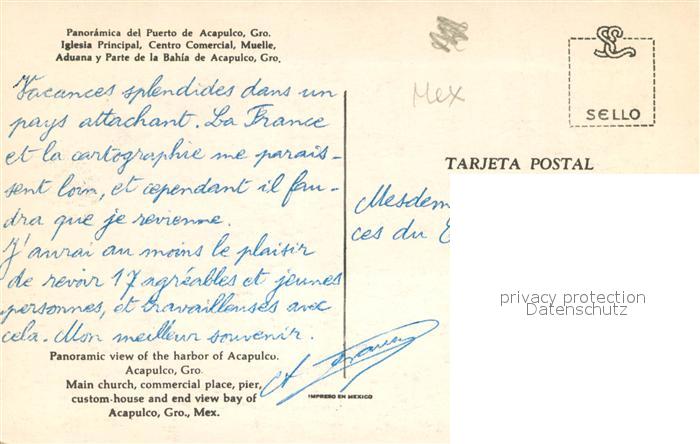 Panorámica del Puerto de Acapulco, Gro.
Iglesia Principal, Centro Comercial, Muelle,
Aduana y Parte de la Bahía de Acapulco, Gro.
Vacances splendides dans un
pays attachant. La France
et la cartographie me parais-
sent loin, et cependant il fau-
dra que je revienne.
J'aurai au moins le plaisir
de revoir 17 agréables et jeunes
personnes, et travailleuses avec
cela. Mon meilleur souvenir.
Panoramic view of the harbor of Acapulco.
Acapulco, Gro.
Main church, commercial place, pier,
custom-house and end view bay of
Acapulco, Gro., Mex.
IMPRESO EN MEXICO
Mex
SELLO
TARJETA POSTAL
Mesdem
ces du
privacy protection
Datenschutz